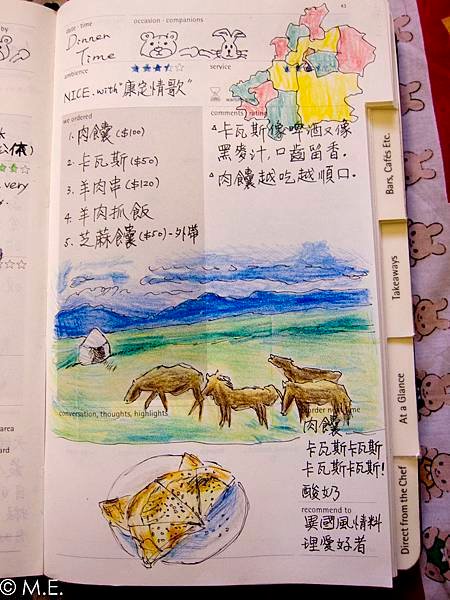 date · time
occasion · companions
43
Dinner
Time
ambience
service
NICE. with "康定情歌"
we ordered
comments
rating
1. 肉饢 ($100)
2. 卡瓦斯 ($50)
3. 羊肉串 ($120)
4. 羊肉抓飯
5. 芝麻饢 ($50) - 外帶
卡瓦斯像啤酒又像
黑麥汁,口齒留香.
肉饢越吃越順口.
conversation, thoughts, highlights
order next time
肉饢
卡瓦斯卡瓦斯
卡瓦斯卡瓦斯!
酸奶
recommend to
異國風情料
理愛好者
Bars, Cafés Etc.
Takeaways
At a Glance
Direct from the Chef
by
very
area
© M.E.